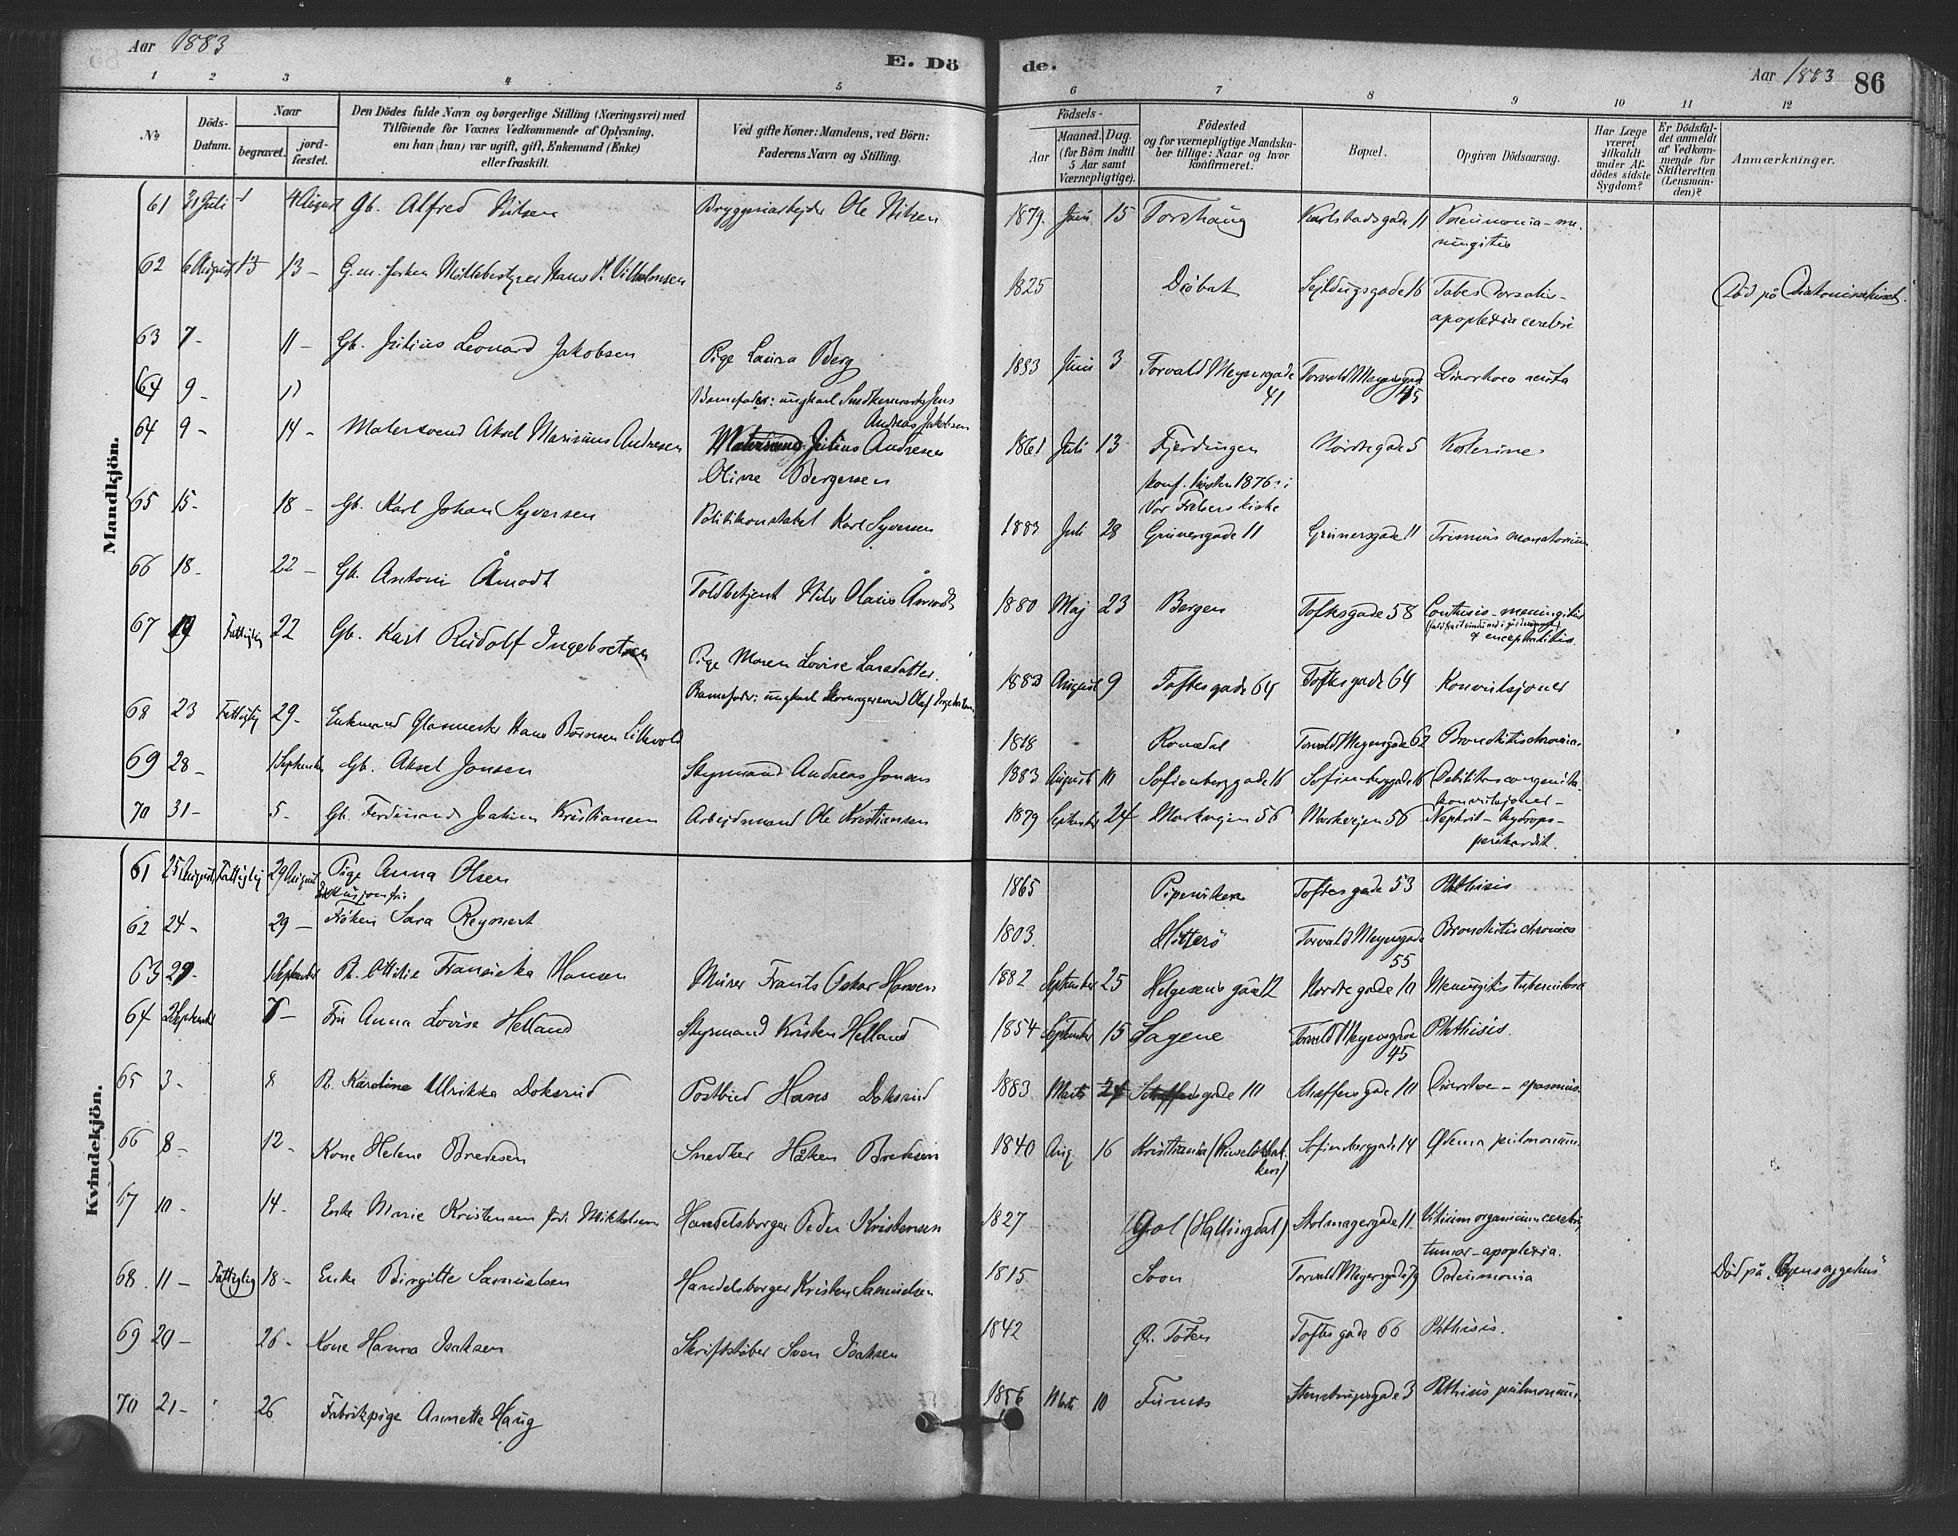 Aar 1883
E. Dö
de.
Aar 1883 86
1 2 3 4 5 6 7 8 9 10 11 12
No
Döds-
Datum.
Naar
begravet.
jord-
fæstet.
Den Dödes fulde Navn og borgerlige Stilling (Næringsvei) med
Tilföiende for Voxnes Vedkommende af Oplysning,
om han (hun) var ugift, gift, Enkemand (Enke)
eller fraskilt.
Ved gifte Koner: Mandens, ved Börn:
Faderens Navn og Stilling.
Födsels-
Aar
Maaned. Dag.
(for Börn indtil
5 Aar samt
Værnepligtige).
Födested
og for værnepligtige Mandska-
ber tillige: Naar og hvor
konfirmeret.
Bopæl.
Opgiven Dödsaarsag.
Har Læge
været
tilkaldt
under Af-
dödes sidste
Sygdom?
Er Dödsfal-
det anmeldt
af Vedkom-
mende for
Skifteretten
(Lensman-
den)?
Anmærkninger.
Mandkjön.
61 31 Juli 4 August Gb. Alfred Nilsen Bryggeriarbejder Ole Nilsen 1879. Juni 15 Torshaug Karlstadsgade 11 Pneumonia – me-
ningitis
62 6 August 13 13 – G.m. Hans Vilhelmsen 1825 Dröbak Sejldugsgade 16 Tabes dorsalis –
apoplexia cerebri Död på Diakonissehuset.
63 7 – 11 – Gb. Julius Leonard Jakobsen Pige Laura Berg 1883 Juni 3 Torvald Meyersgade
41 Torvald Meyersgade
45 Diarrhoea acuta
64 9 – 11 Barnefader: ungkarl Jens
Andreas Jakobsen
64 9 – 14 – Malersvend Aksel Marinius Andresen Julius Andresen
Oline Bergersen 1861 Juli 13 Fjerdingen
konf. hösten 1876 i
Vor Frelsers kirke Nordregade 5
65 15 – 18 – Gb. Karl Johan Syversen Politikonstabel Karl Syversen 1883 Juli 28 Grünersgade 11 Grünersgade 11 Trismus
66 18 – 22 – Gb. Antoni Åmodt Toldbetjent Nils Olaus Åmodt 1880 Maj 23 Bergen Toftesgade 58 Contusio – meningitis
& encephalitis
67 19 Fattiglig 22 Gb. Karl Rudolf Ingebretsen Pige Maren Lovise Larsdatter.
Barnefader: ungkarl Skomagersvend Olaf Ingebretsen 1883 August 9 Toftesgade 64 Toftesgade 64 Konvulsjoner
68 23 Fattiglig 29 – Enkemand Glasmester Hans 1818 Romedal Torvald Meyersgade 62 Bronchitis chronica
69 28 – 1 September Gb. Aksel Jonsen Styrmand Andreas Jonsen 1883 August 10 Sofienberggade 16 Sofienberggade 16 Debilitas congenita
konvulsjoner –
70 31 – 5 – Gb. Ferdinand Joakim Kristiansen Arbejdsmand Ole Kristiansen 1879 September 24 Markvejen 56 Markvejen 56 Nephrit – hydrops –
perikardit.
Kvindekjön.
61 25 August Fattiglig 29 August Pige Anna Olsen 1865 Piperviken Toftesgade 53 Phthisis
62 24 – 29 – Fröken Sara Reymert 1803. Hitterö Torvald Meyersgade
55 Bronchitis chronica
63 29 – 1 September P. Ottilie Franciska Hansen Murer Frants Oskar Hansen 1882 September 25 Helgesens gade 12 Nordre gade 11 Meningitis tuberculosa
64 2 September 7 – Fru Anna Lovise Helland Styrmand Kristen Helland 1854 September 15 Sagene Torvald Meyersgade
45 Phthisis.
65 3 – 8 P. Karoline Ulrikka Doksrud Postbud Hans Doksrud 1883 Marts 24 Schæffersgade 111 Schæffersgade 111 Diarrhoe –
66 8 – 12 – Kone Helene Bredesen Snedker Håken Bredesen 1840 Aug. 16 Kristiania Sofienberggade 14 Ødema pulmonum.
67 10 – 14 – Enke Marie Kristensen född Mikkelsen Handelsborger Peder Kristensen 1827 Gol (Hallingdal) Skolmagergade 11. Vitium organicum cerebri,
tumor – apoplexia.
68. 11 – Fattiglig 18 – Enke Birgitte Samuelsen Handelsborger Kristen Samuelsen 1815 Svon Torvald Meyersgade Pneumonia Död på „Byens sygehus“
69 20 – 26 – Kone Hanna Isaksen Skriftstöber Sven Isaksen 1842 Ø. Toten Toftesgade 66 Phthisis.
70 21 – 26 Fabrikpige Annette Haug 1856 Marts 10 Furnes Stenstrupsgade 3 Phthisis pulmonum.